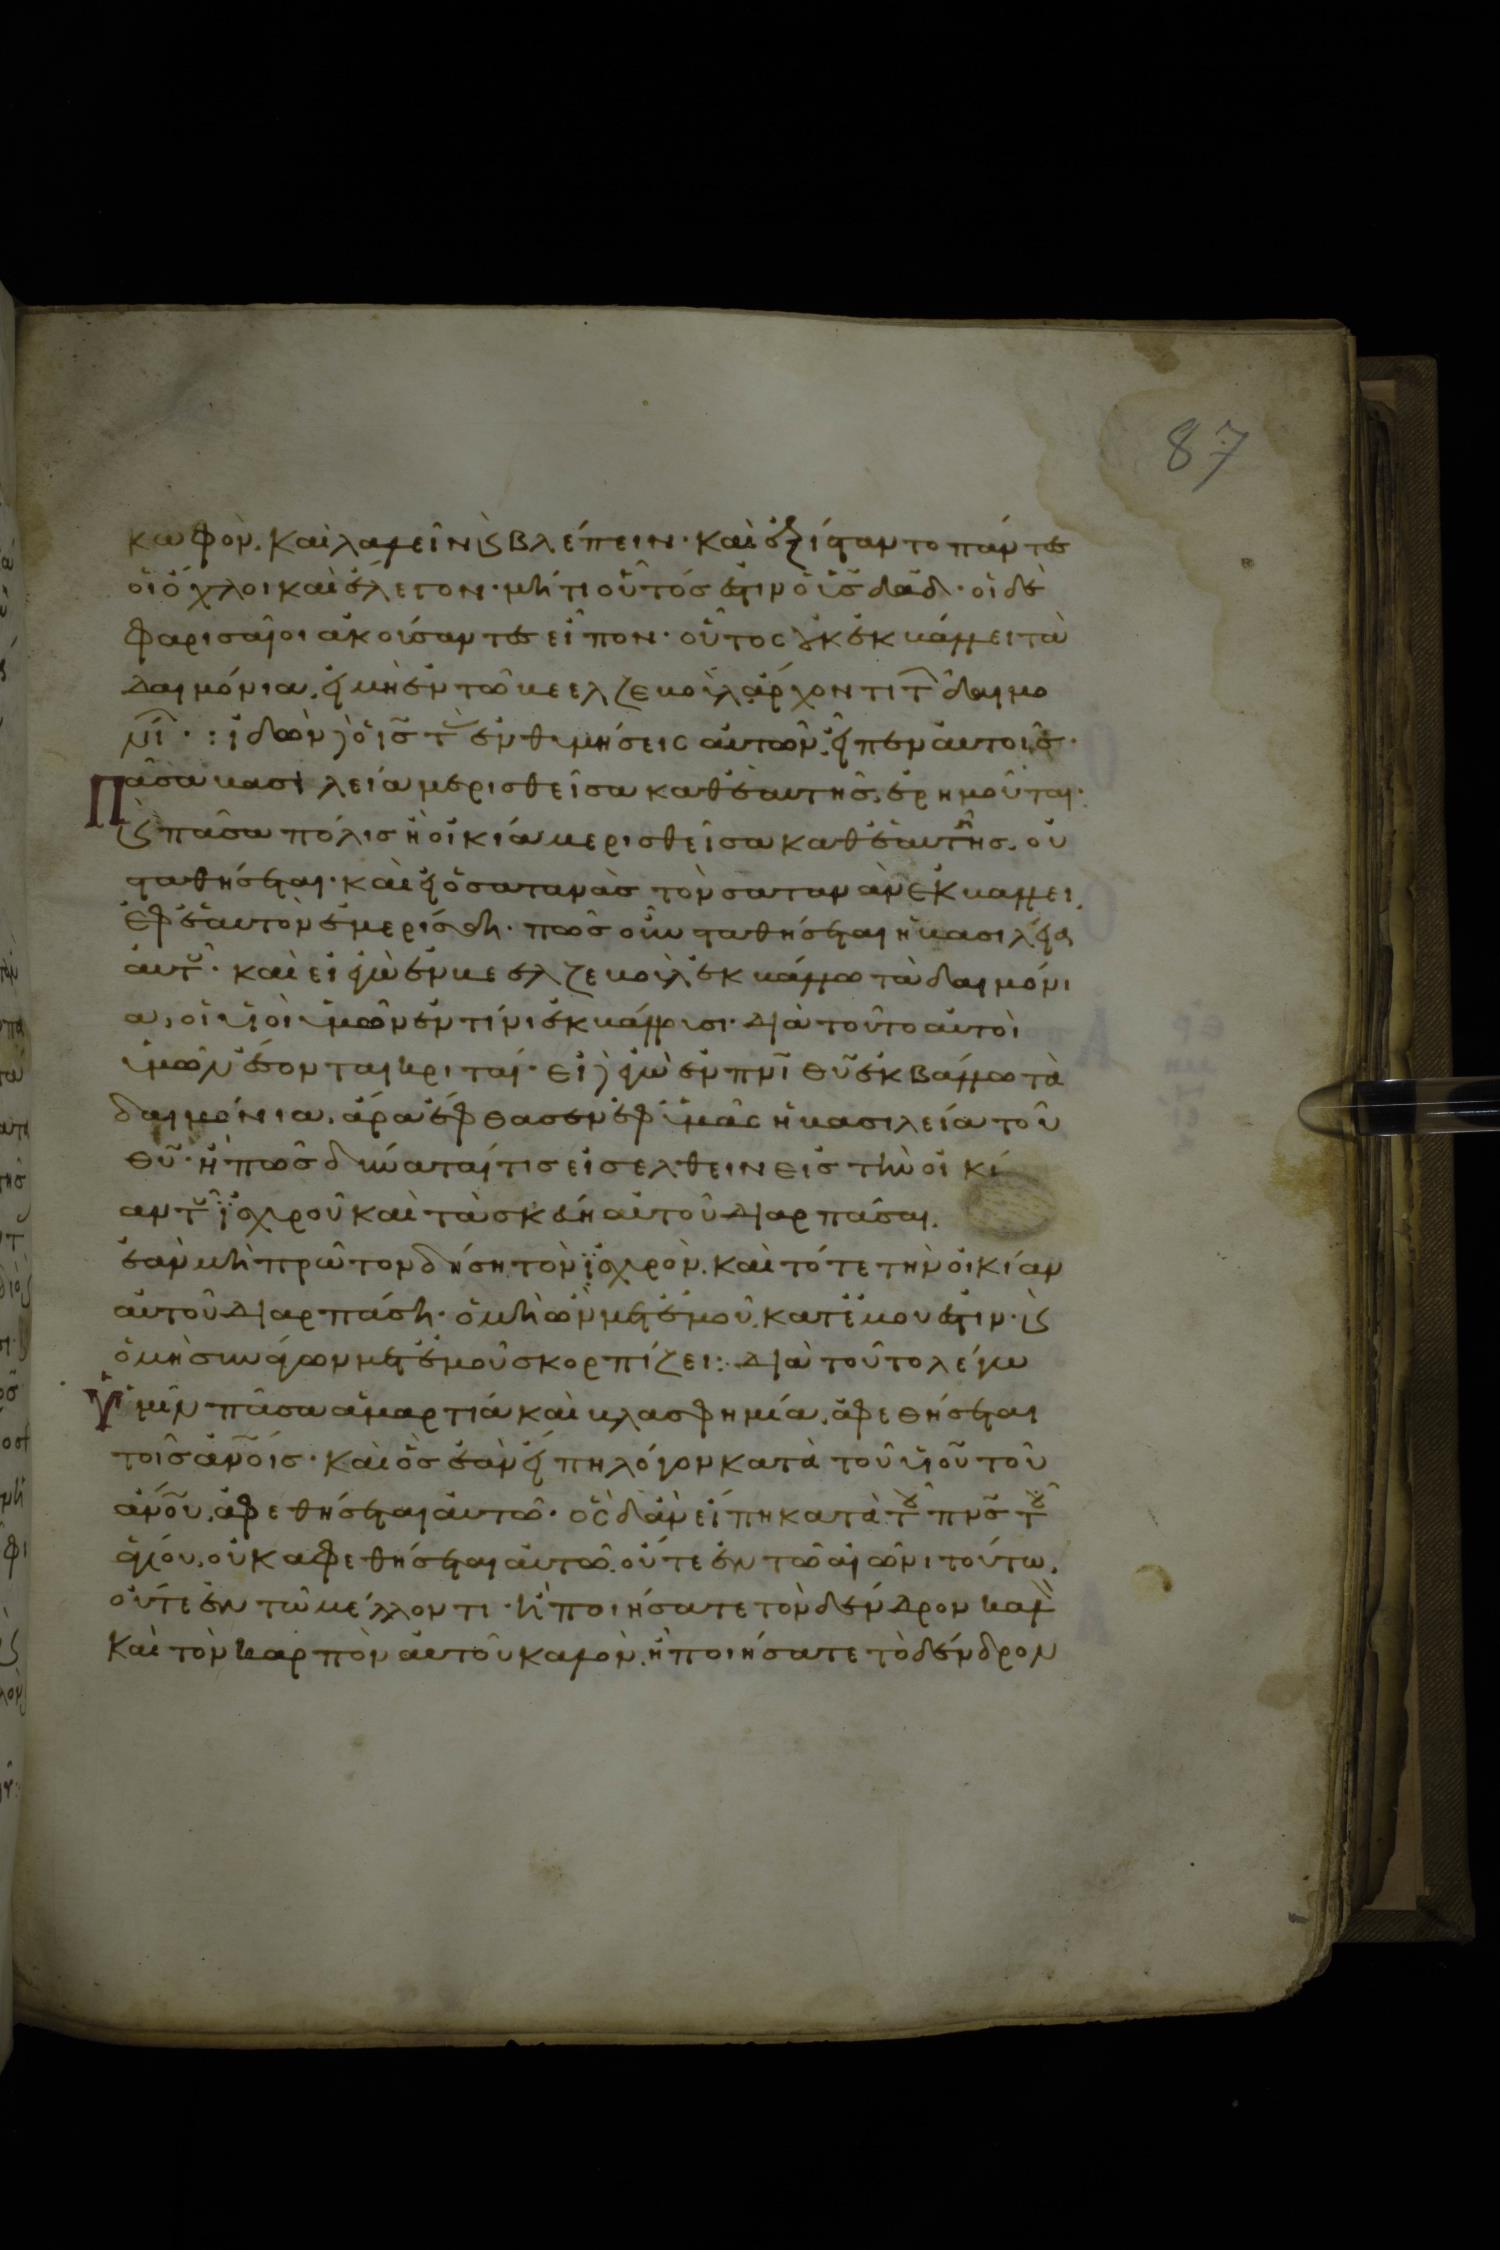 87
κωφὸν. καὶ λαλεῖν κ(αὶ) βλέπειν· καὶ ἐξίσταντο πάντες
οἱ ὄχλοι καὶ ἔλεγον· μήτι οὗτός ἐστιν ὁ υἱς δαδ· οἱ δὲ
φαρισαῖοι ἀκούσαντες εἶπον· οὗτος οὐκ ἐκβάλλει τὰ
δαιμόνια. εἰ μὴ ἐν τῶ βεελζεβοὺλ ἄρχοντι τ δαιμο
νί· : ἰδὼν δὲ ὁ ις τ ἐνθυμήσεις αὐτῶν. εἶπεν αὐτοῖς·
Πᾶσα βασιλεία μερισθεῖσα καθ ἑαυτῆς. ἐρημοῦται·
κ(αὶ) πᾶσα πόλις ἢ οἰκία μερισθεῖσα καθ ἑαυτῆς. οὐ
σταθήσεται· καὶ εἰ ὁ σατανὰς τὸν σατανὰν ἐκβάλλει.
ἐφ ἑαυτὸν ἐμερίσθη· πῶς οὖν σταθήσεται ἡ βασιλεία
αὐτοῦ· καὶ εἰ ἐγὼ ἐν βεελζεβοὺλ ἐκβάλλω τὰ δαιμόνι
α, οἱ υἱοὶ ὑμῶν ἐν τίνι ἐκβάλλουσι· διὰ τοῦτο αὐτοὶ
ὑμῶν ἔσονται κριταί· εἰ δὲ ἐγὼ ἐν πνι θυ ἐκβάλλω τὰ
δαιμόνια. ἄρα ἔφθασεν ἐφ ὑμᾶς ἡ βασιλεία τοῦ
θυ· ἢ πῶς δύναταί τις εἰσελθειν εἰς τὴν οἰκί
αν τοῦ ἰσχυροῦ καὶ τὰ σκεύη αὐτοῦ διαρπάσαι.
ἐὰν μὴ πρῶτον δήση τὸν ἰσχυρὸν. καὶ τότε τὴν οἰκίαν
αὐτοῦ διαρπάση· ὁ μὴ ὢν μετ ἐμοῦ. κατ ἐμου ἐστιν· κ(αὶ)
ὁ μὴ συνάγων μετ ἐμοῦ σκορπίζει: διὰ τοῦτο λέγω
Ὑμῖν πᾶσα ἁμαρτία καὶ βλασφημία. ἀφεθήσεται
τοῖς ἀνοις· καὶ ὃς ἐὰν εἴπη λόγον κατὰ τοῦ υἱοῦ τοῦ
ἀνου. ἀφεθήσεται αὐτῶ· ὃς δ ἂν εἴπη κατὰ τοῦ πνς τοῦ
ἁγίου. οὐκ αφεθήσεται αὐτῶ. οὔτε ἐν τῶ αἰῶνι τούτω.
οὔτε ἐν τῶ μέλλοντι· ἢ ποιήσατε τὸν δένδρον καλὸ
καὶ τὸν καρπὸν αὐτοῦ καλὸν. ἢ ποιήσατε τὸ δένδρον